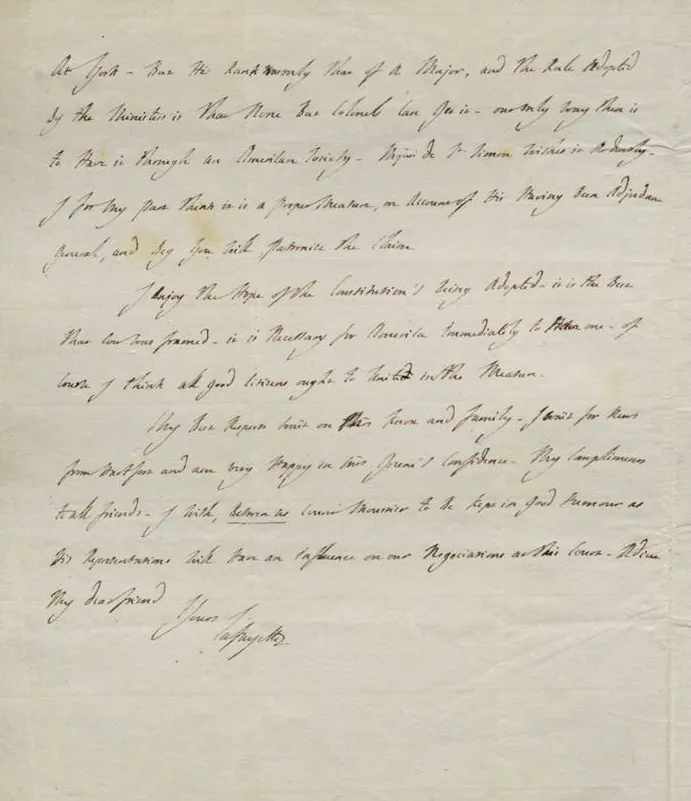 At York - But His Rank is only that of a Major, and the Rule Adopted
by the Ministers is that None But Colonels Can Get it - our only way then is
to Have it through an American Society - Mquis de St. Simon wishes it Ardently -
I for my part think it is a proper Measure, on Account of His Having Been Adjudant
General, and Beg You will patronize the Claim
I Enjoy the Hope of the Constitution's being Adopted - it is the Best
that Ever was framed - it is Necessary for America Immediately to Have one - of
Course I think all good Citizens ought to Unite in the Measure.
My Best Respects wait on Mrs Knox and family - I wait for News
from and am very Happy in Mrs. Greene's Confidence - My Compliments
to all friends - I wish, Between us Count Moustier to Be kept in Good Humour as
His Representations will Have an Influence on our Negociations at this Court - Adieu
My dear friend
Yours
Lafayette